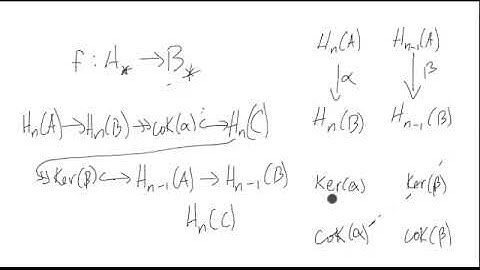 f : A_* → B_*
H_n(A) → H_n(B) ↠ cok(α) ↪ H_n(C)
↠ Ker(β) ↪ H_{n-1}(A) → H_{n-1}(B)
H_n(C)
H_n(A) H_{n-1}(A)
↓ α ↓ β
H_n(B) H_{n-1}(B)
Ker(α) Ker(β)
cok(α) cok(β)